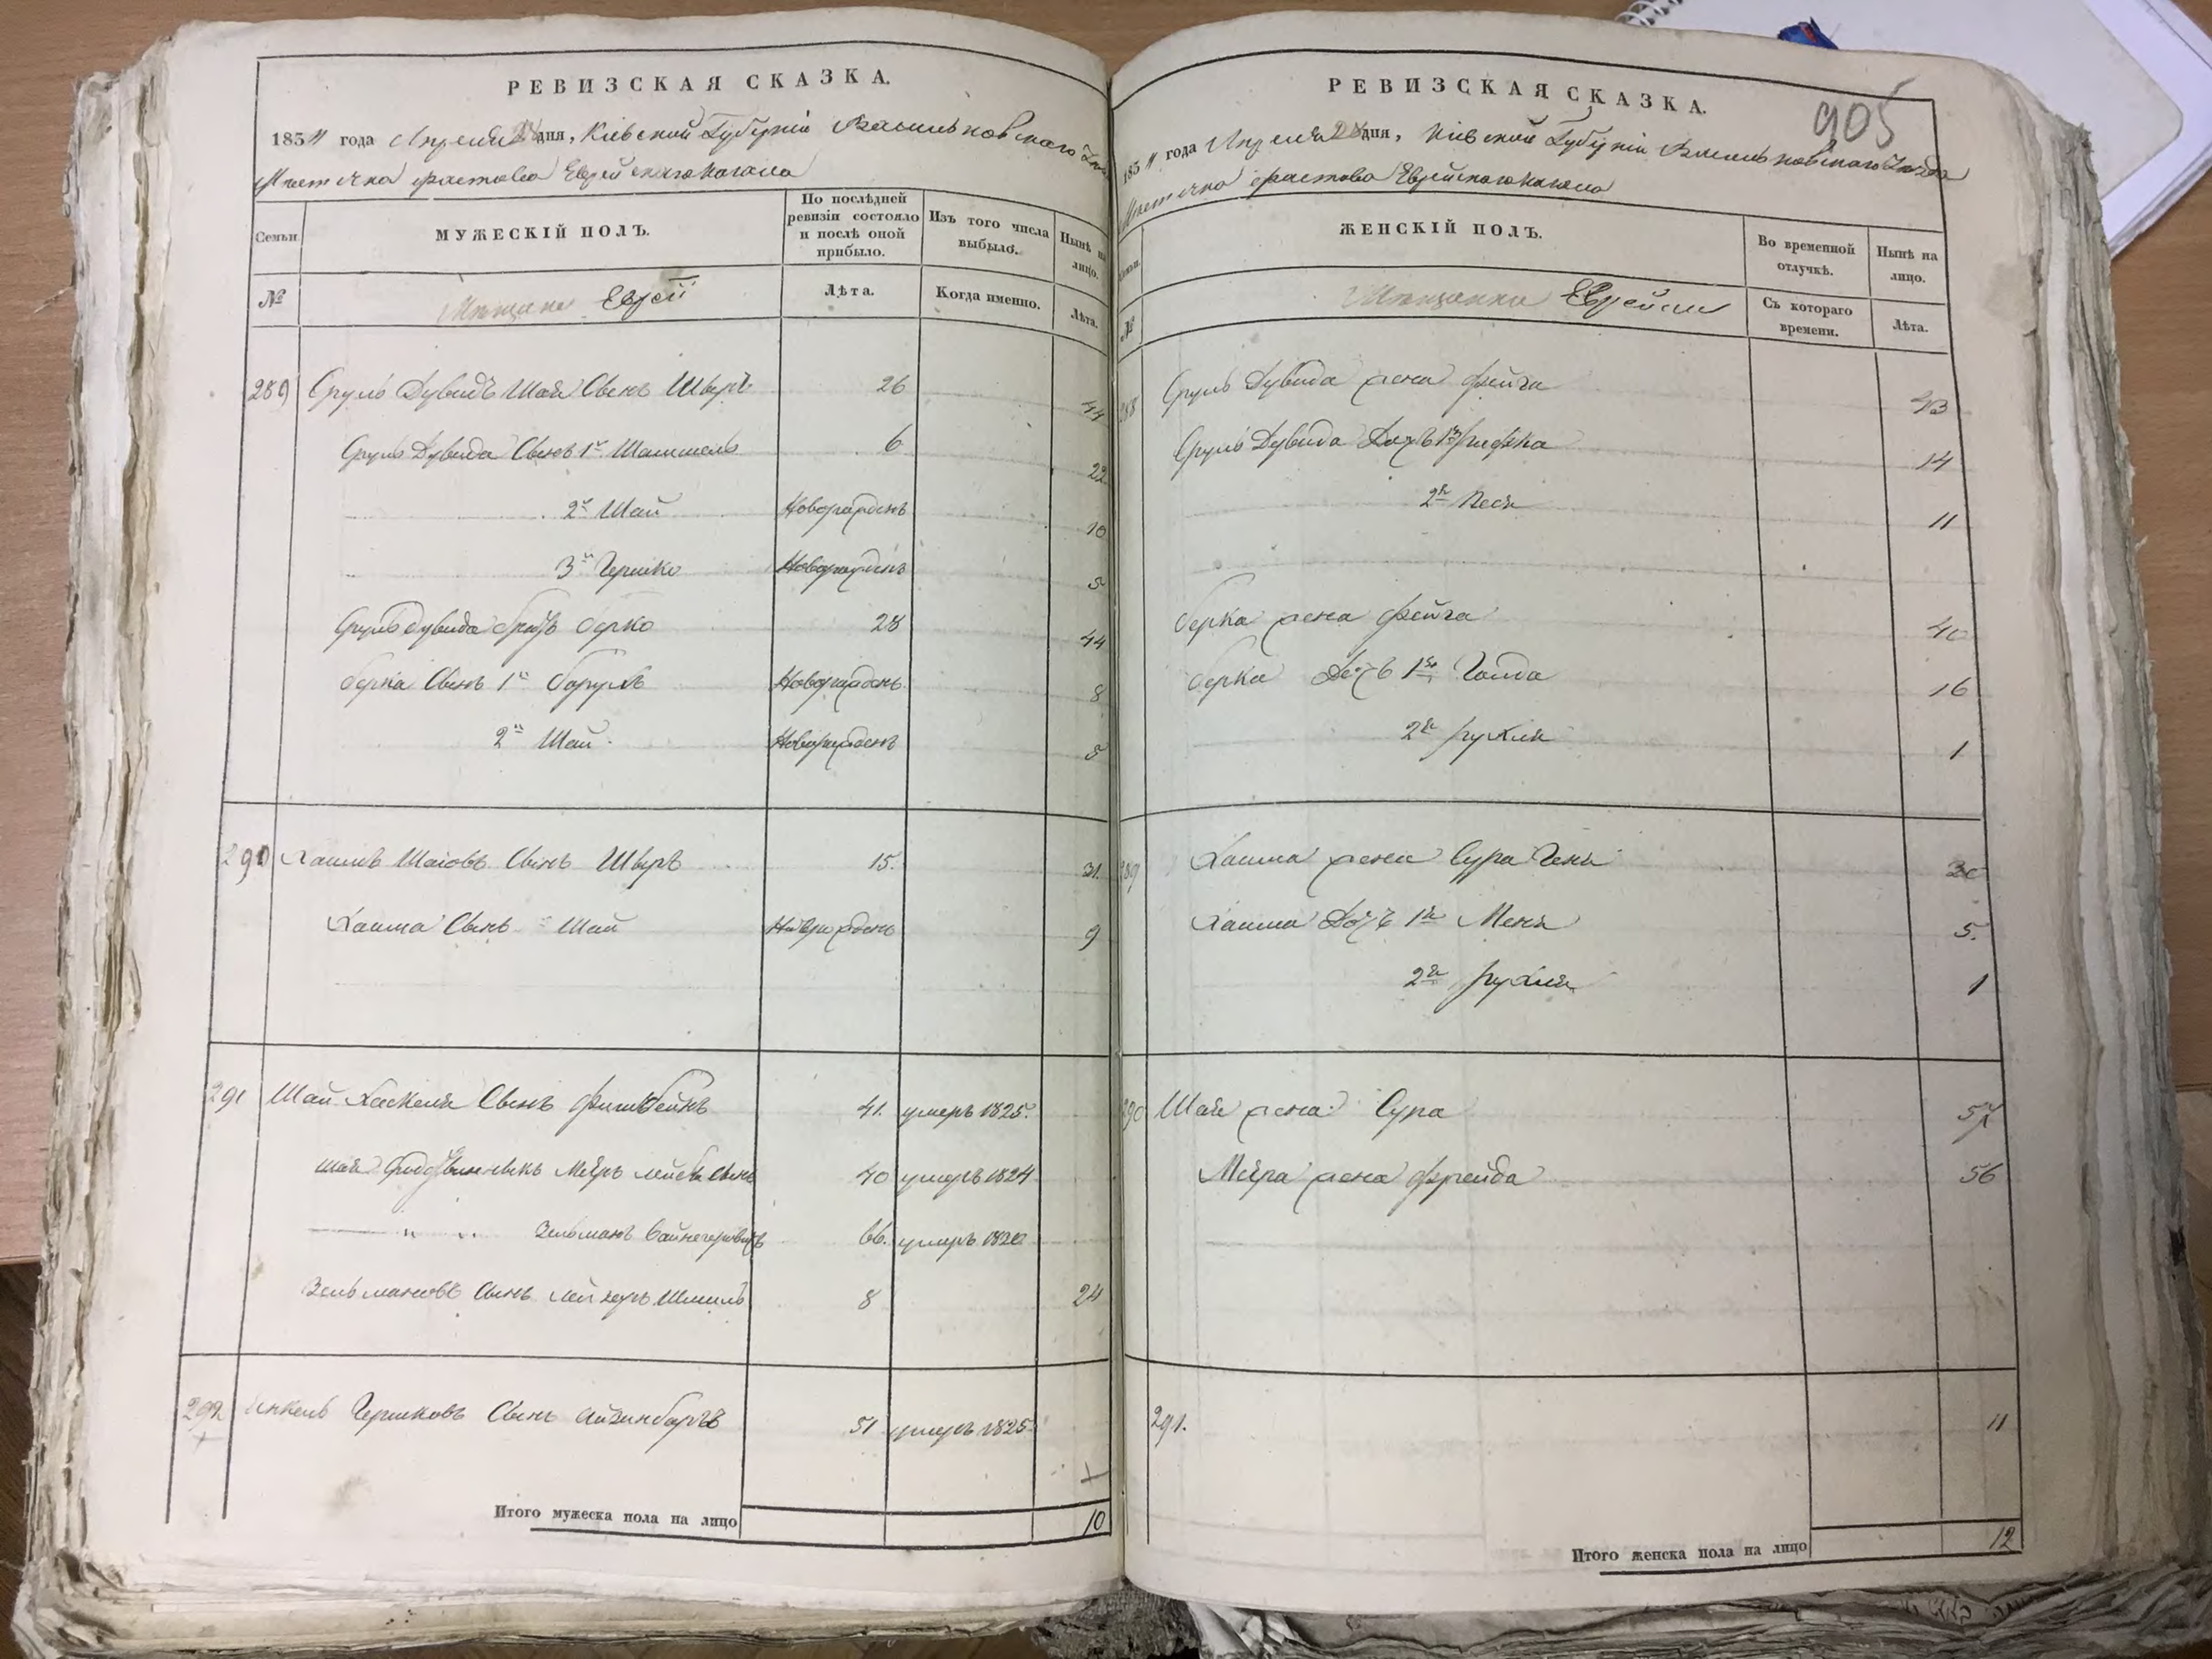 РЕВИЗСКАЯ СКАЗКА.
185 года Апреля дня, Кіевской Губерніи Васильковского
Местечка Фастова Еврейского Кагала
Семьи
МУЖЕСКІЙ ПОЛЪ.
По послѣдней ревизіи состояло и послѣ оной прибыло.
Изъ того числа выбыло.
Нынѣ на лицо.
№
Мещане Евреи
Лѣта.
Когда именно.
Лѣта.
289 Сруль Дувидъ Шаи Сынъ Шверъ 26 44
Сруль Дувида Сынъ 1й 6 22
2й Шай Новорожденъ 10
3й Гершко Новорожденъ 5
Сруль Дувида братъ Берко 28 44
Берка Сынъ 1й Борухъ Новорожденъ 8
2й Шай Новорожденъ 5
290 Хаимъ Шаіовъ Сынъ Шверъ 15. 31.
Хаима Сынъ Шай Новорожденъ 9
291 Шай Хаскеля Сынъ 41. умеръ 1825.
Шаи Мееръ Лейба Сынъ 40 умеръ 1824
Зельманъ 66. умеръ
Зельмановъ Сынъ Шмиль 8 24
292 Янкель Гершковъ Сынъ 51 умеръ 1825
Итого мужеска пола на лицо 10
905
РЕВИЗСКАЯ СКАЗКА.
185 года Апреля дня, Кіевской Губерніи Васильковского Уезда
Местечка Фастова Еврейского Кагала
Семьи.
ЖЕНСКІЙ ПОЛЪ.
Во временной отлучкѣ.
Нынѣ на лицо.
№
Мещанки Еврейки
Съ котораго времени.
Лѣта.
288 Сруль Дувида жена Фейга 43
Сруль Дувида Дочь 1я Рифка 14
2я Песя 11
Берка жена Фейга 40
Берка Дочь 1я Голда 16
2я Рухля 1
289 Хаима жена Сура Геня 30
Хаима Дочь 1я Меня 5.
2я Рухля 1
290 Шаи жена Сура
Меера жена Фрейда 56
291. 11
Итого женска пола на лицо 12